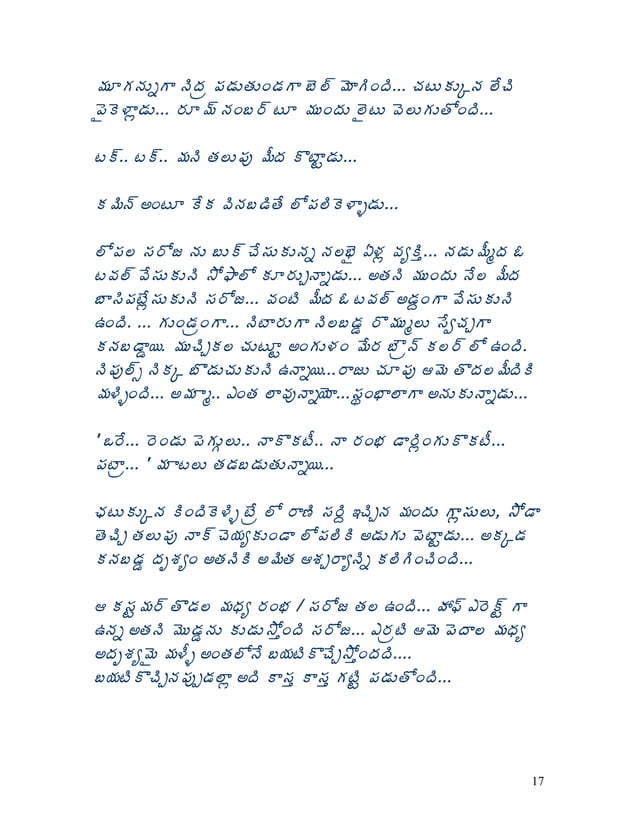 మూగన్నుగా నిద్ర పడుతుండగా బెల్ మోగింది... చటుక్కున లేచి
పైకెళ్లాడు... రూమ్ నంబర్ టూ ముందు లైటు వెలుగుతోంది...
టక్.. టక్.. మని తలుపు మీద కొట్టాడు...
కమిన్ అంటూ కేక వినబడితే లోపలికెళ్ళాడు...
లోపల సరోజ ను బుక్ చేసుకున్న నలభై ఏళ్ల వ్యక్తి... నడుమ్మీద ఓ
టవల్ వేసుకుని సోఫాలో కూర్చున్నాడు... అతని ముందు నేల మీద
బాసిపట్లేసుకుని సరోజ... వంటి మీద ఓ టవల్ అడ్డంగా వేసుకుని
ఉంది. ... గుండ్రంగా... నిటారుగా నిలబడ్డ రొమ్ములు స్వేచ్చగా
కనబడ్డాయి. ముచ్చికల చుట్టూ అంగుళం మేర బ్రౌన్ కలర్ లో ఉంది.
నిపుల్స్ నిక్క బొడుచుకుని ఉన్నాయి...రాజు చూపు ఆమె తొడల మీదికి
మళ్ళింది... అమ్మా.. ఎంత లావున్నాయో...స్థంభాలాగా అనుకున్నాడు...
'ఒరే... రెండు పెగ్గులు.. నాకొకటీ.. నా రంభ డార్లింగుకొకటీ...
పట్రా... ' మాటలు తడబడుతున్నాయి...
ఛటుక్కున కిందికెళ్ళి ట్రే లో రాణి సర్ది ఇచ్చిన మందు గ్లాసులు, సోడా
తెచ్చి తలుపు నాక్ చెయ్యకుండా లోపలికి అడుగు పెట్టాడు... అక్కడ
కనబడ్డ దృశ్యం అతనికి అమిత ఆశ్చర్యాన్ని కలిగించింది...
ఆ కస్టమర్ తొడల మధ్య రంభ / సరోజ తల ఉంది... హాఫ్ ఎరెక్ట్ గా
ఉన్న అతని మొడ్డను కుడుస్తోంది సరోజ... ఎర్రటి ఆమె పెదాల మధ్య
అదృశ్యమై మళ్ళీ అంతలోనే బయటికొచ్చేస్తోందది....
బయటికొచ్చినప్పుడల్లా అది కాస్త కాస్త గట్టి పడుతోంది...
17